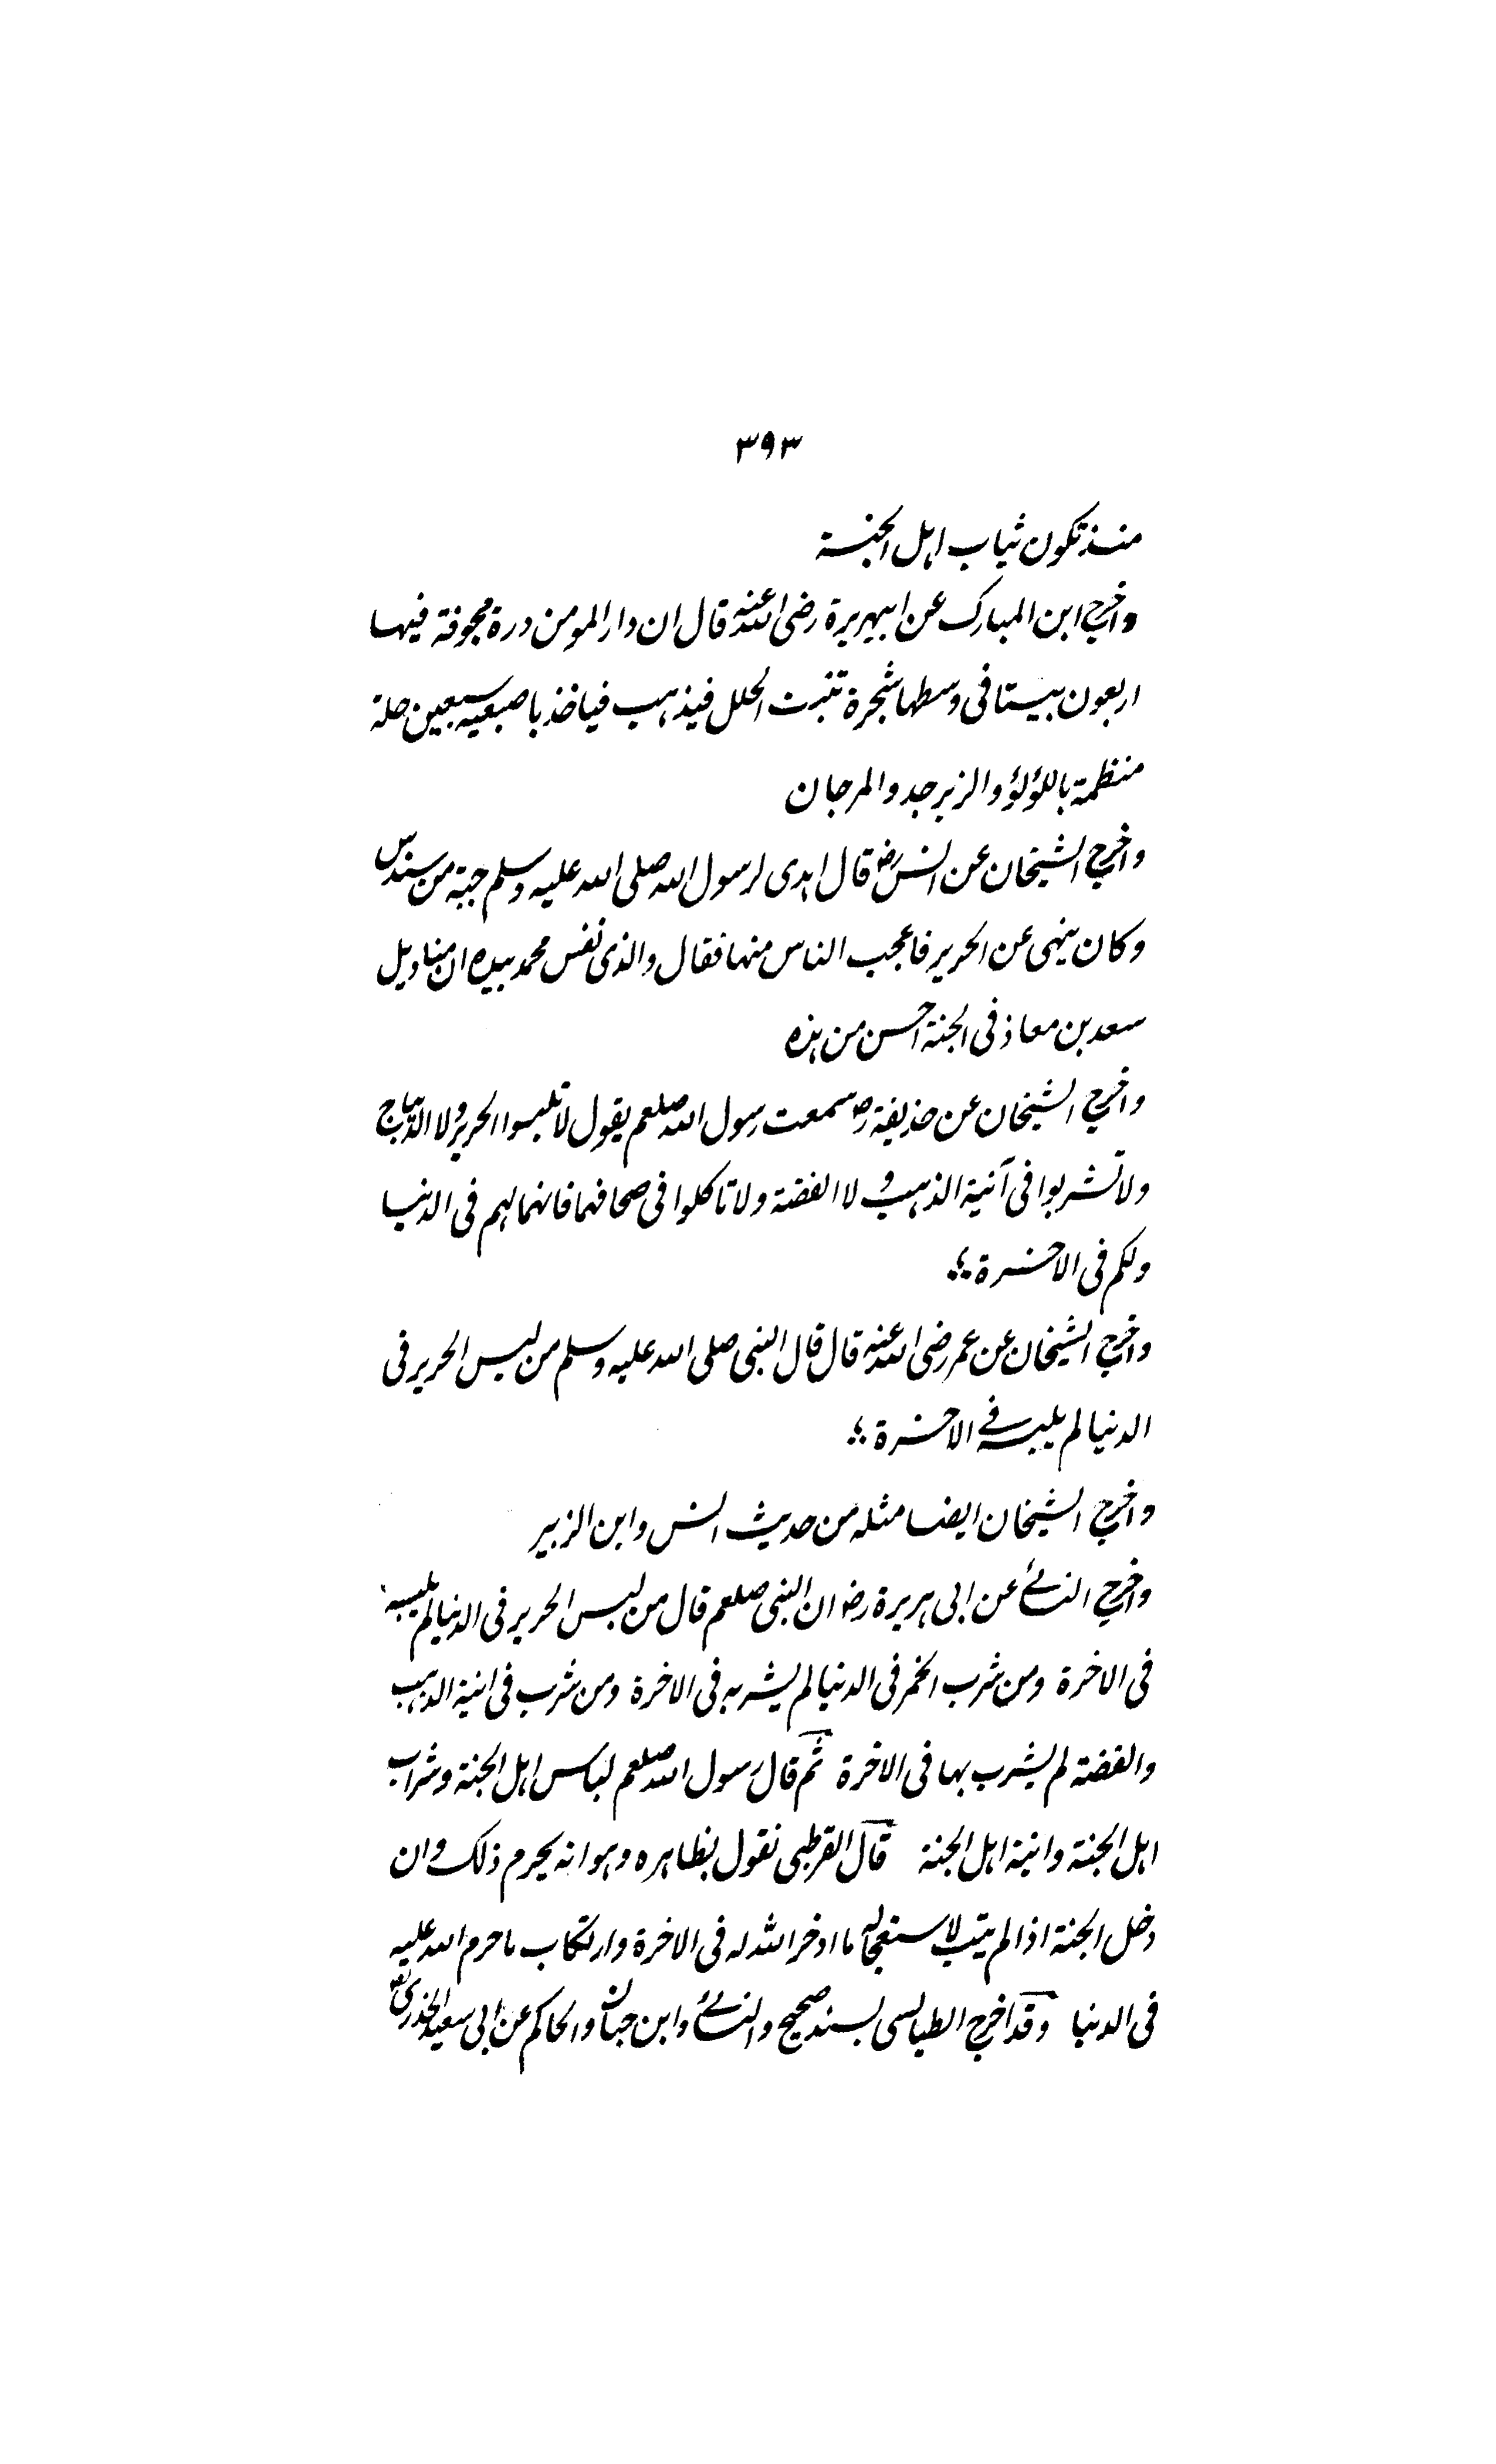 ٣٩٣
منه تكون ثياب اهل الجنة
واخرج ابن المبارك عن ابيهريرة رضى الله عنه قال ان دار المومن درة مجوفة فيها
اربعون بيتا فى وسطها شجرة تنبت الحلل فيذهب فياخذ باصبعيه سبعين حلة
منظمة باللؤلؤ والزبرجد والمرجان
واخرج الشيخان عن انس رض قال اهدى لرسول الله صلى الله عليه وسلم جبة من سندس
وكان ينهى عن الحرير فاعجب الناس منها فقال والذى نفس محمد بيده ان مناديل
سعد بن معاذ فى الجنة احسن من هذه
واخرج الشيخان عن حذيفة رض سمعت رسول الله صلعم يقول لا تلبسوا الحرير ولا الديباج
ولا تشربوا فى آنية الذهب و لا الفضة ولا تاكلوا فى صحافهما فانهما لهم فى الدنيا
ولكم فى الاخرة ؞
واخرج الشيخان عن عمر رضى الله عنه قال قال النبى صلى الله عليه وسلم من لبس الحرير فى
الدنيا لم يلبسه فى الاخرة ؞
واخرج الشيخان ايضا مثله من حديث انس وابن الزبير
واخرج النسائى عن ابى هريرة رض ان النبى صلعم قال من لبس الحرير فى الدنيا لم يلبسه
فى الاخرة ومن شرب الخمر فى الدنيا لم يشربه فى الاخرة ومن شرب فى انية الذهب
والفضة لم يشرب بها فى الاخرة ثم قال رسول الله صلعم لباس اهل الجنة وشراب
اهل الجنة وانية اهل الجنة قال القرطبى نقول بظاهره وهو انه يحرم ذلك وان
دخل الجنة اذا لم يتب لاستعجاله ما ادخر الله له فى الاخرة وارتكاب ما حرم الله عليه
فى الدنيا وقد اخرج الطيالسى بسند صحيح والنسائى وابن حبان والحاكم عن ابى سعيد الخدرى رض